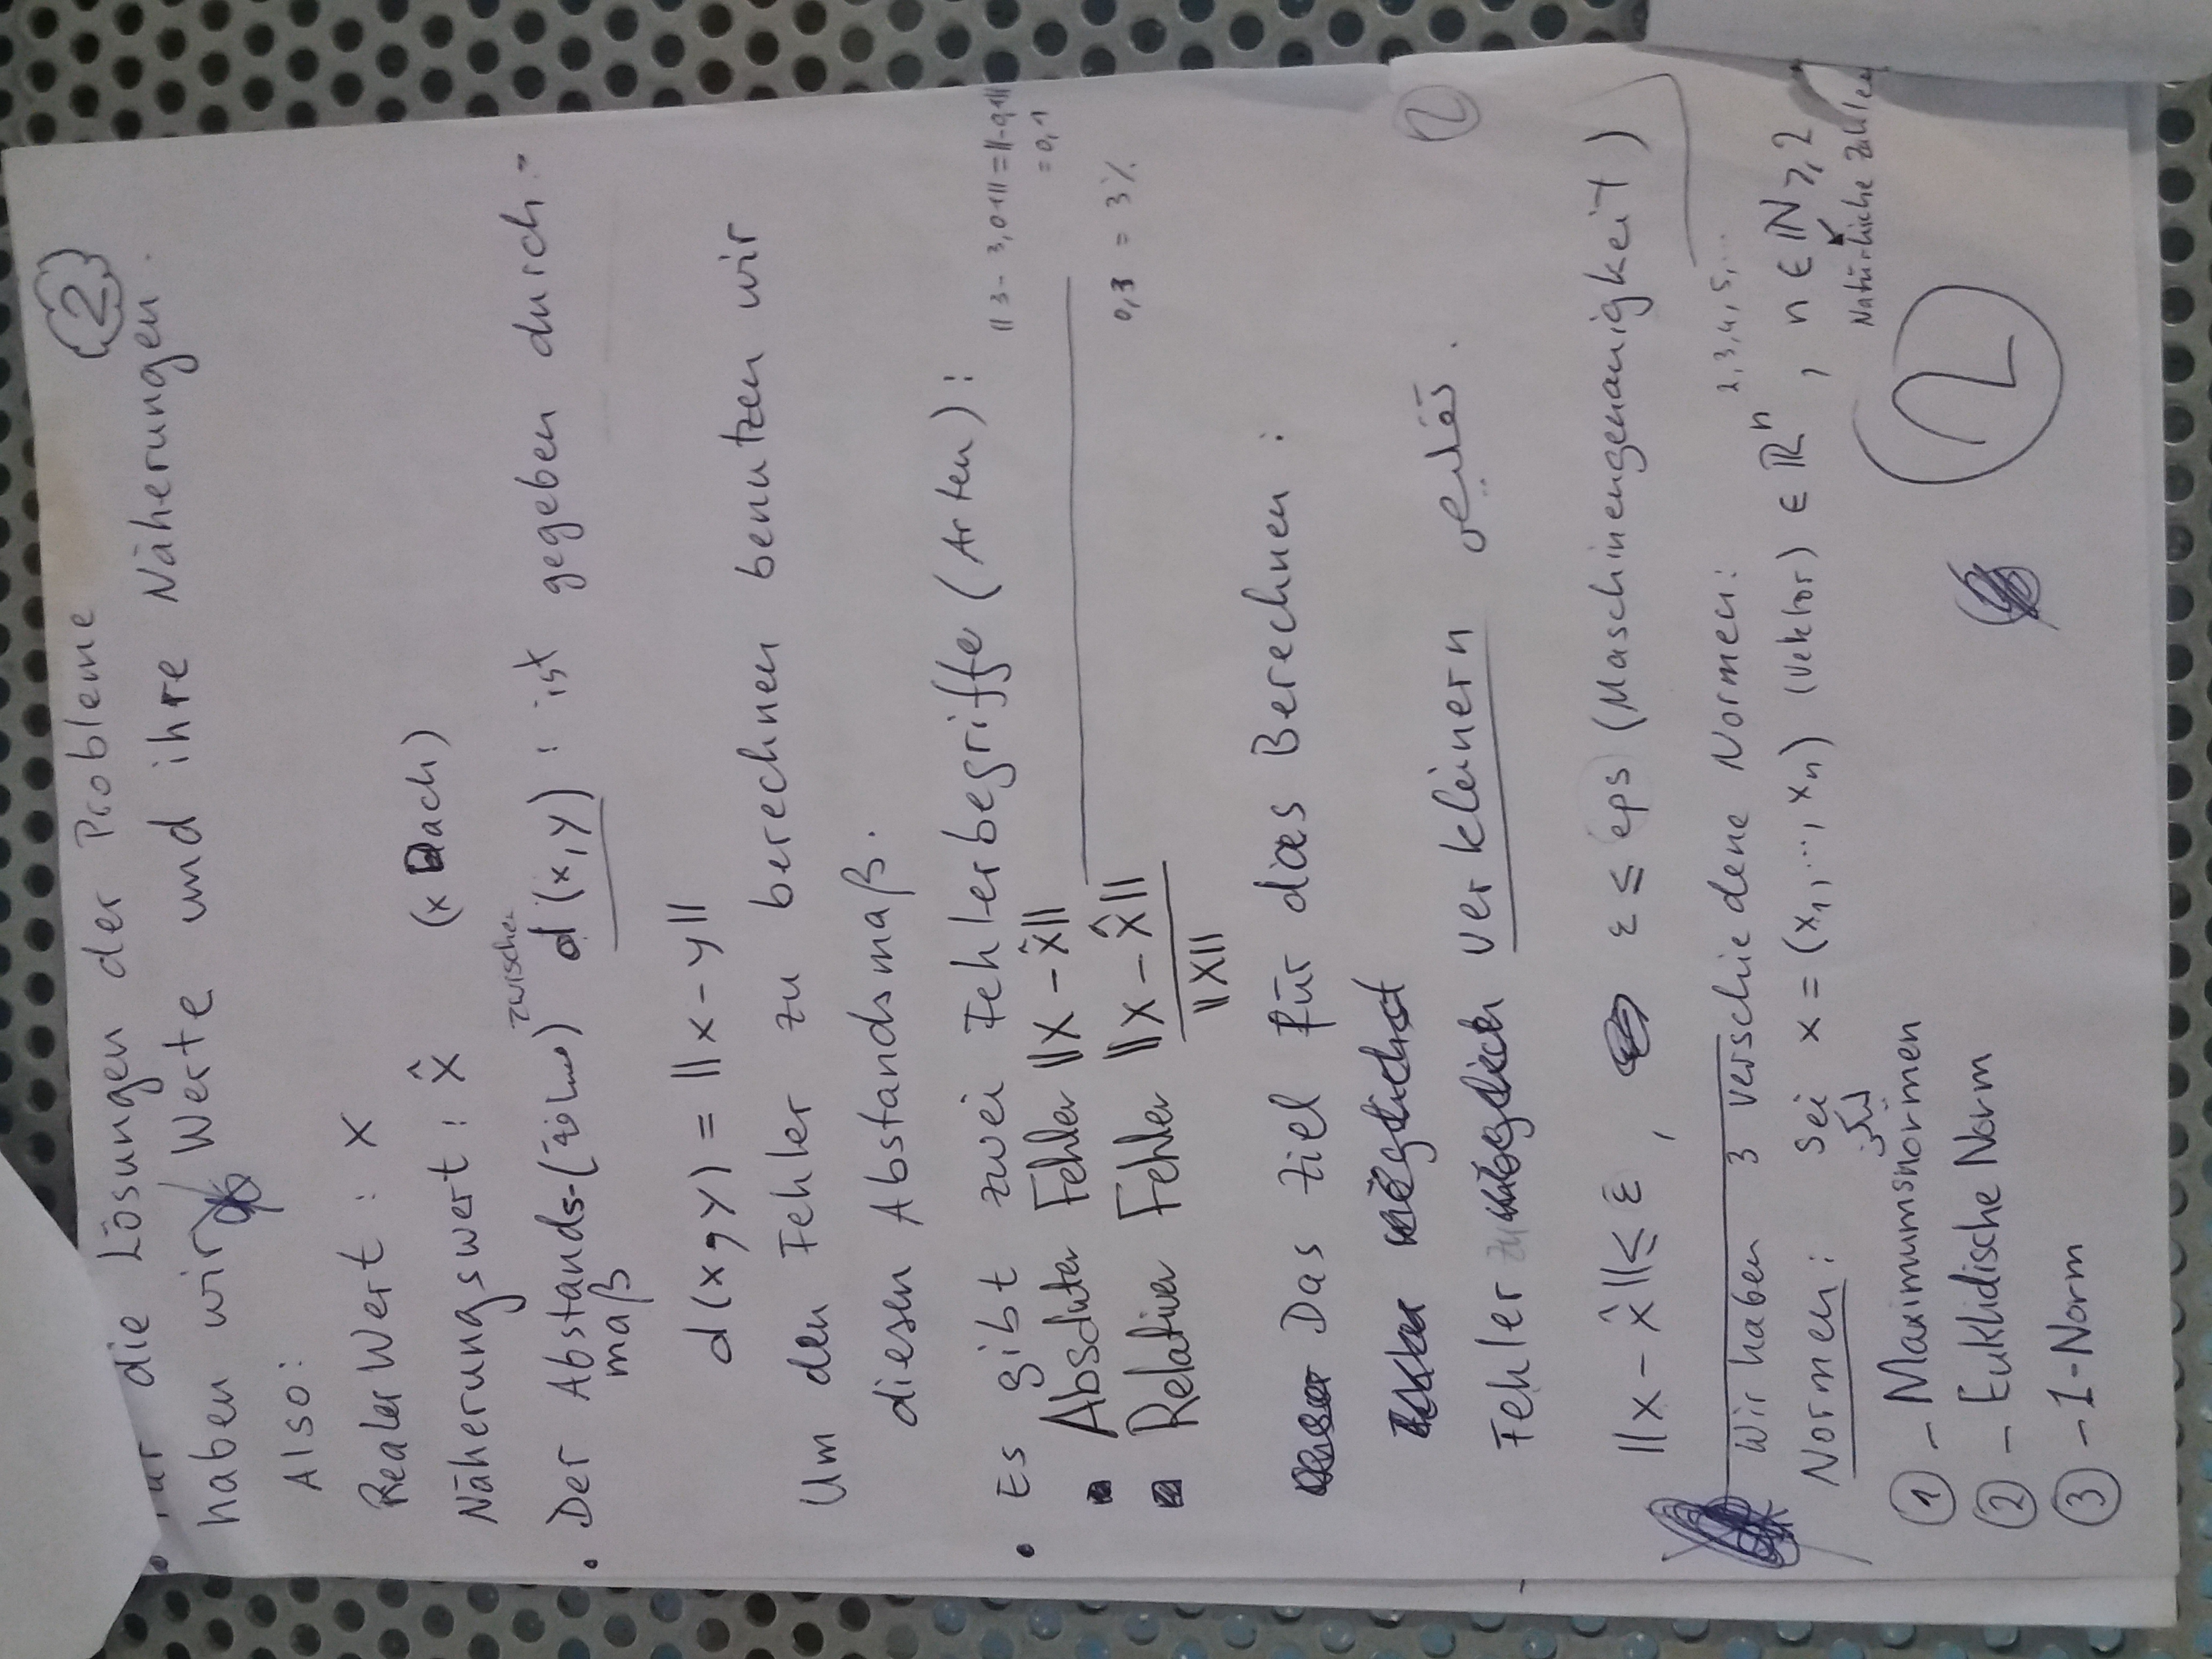 2
Für die Lösungen der Probleme
haben wir Werte und ihre Näherungen.
Also:
Realer Wert : x
Näherungswert : x̂ (x Dach)
zwischen
• Der Abstands- d(x,y) : ist gegeben durch
maß
d(x,y) = ||x-y||
Um den Fehler zu berechnen benutzen wir
diesen Abstandsmaß.
• Es gibt zwei Fehlerbegriffe (Arten):
|| 3 - 3,01|| = ||-0,1||
= 0,1
▪ Absoluter Fehler ||x - x̂||
▪ Relativer Fehler ||x - x̂||
||x||
0,3 = 3%
Das Ziel für das Berechnen :
möglichst
Fehler zu möglich verkleinern تقليص .
2
||x - x̂|| ≤ ε , ε ≤ eps (Maschinengenauigkeit)
Wir haben 3 verschiedene Normen:
2,3,4,5,...
Normen: Sei x = (x₁,...,xₙ) (Vektor) ∈ ℝⁿ , n ∈ ℕ ≥ 2
ليكن
Natürliche Zahlen
① - Maximumsnormen
② - Euklidische Norm
③ - 1-Norm
2